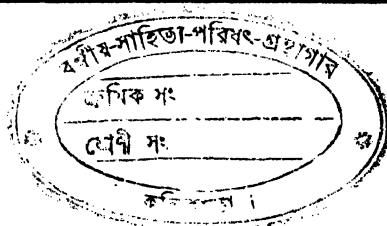 বঙ্গীয়-সাহিত্য-পরিষৎ-গ্রন্থাগার
ক্রমিক সং
শ্রেণী সং